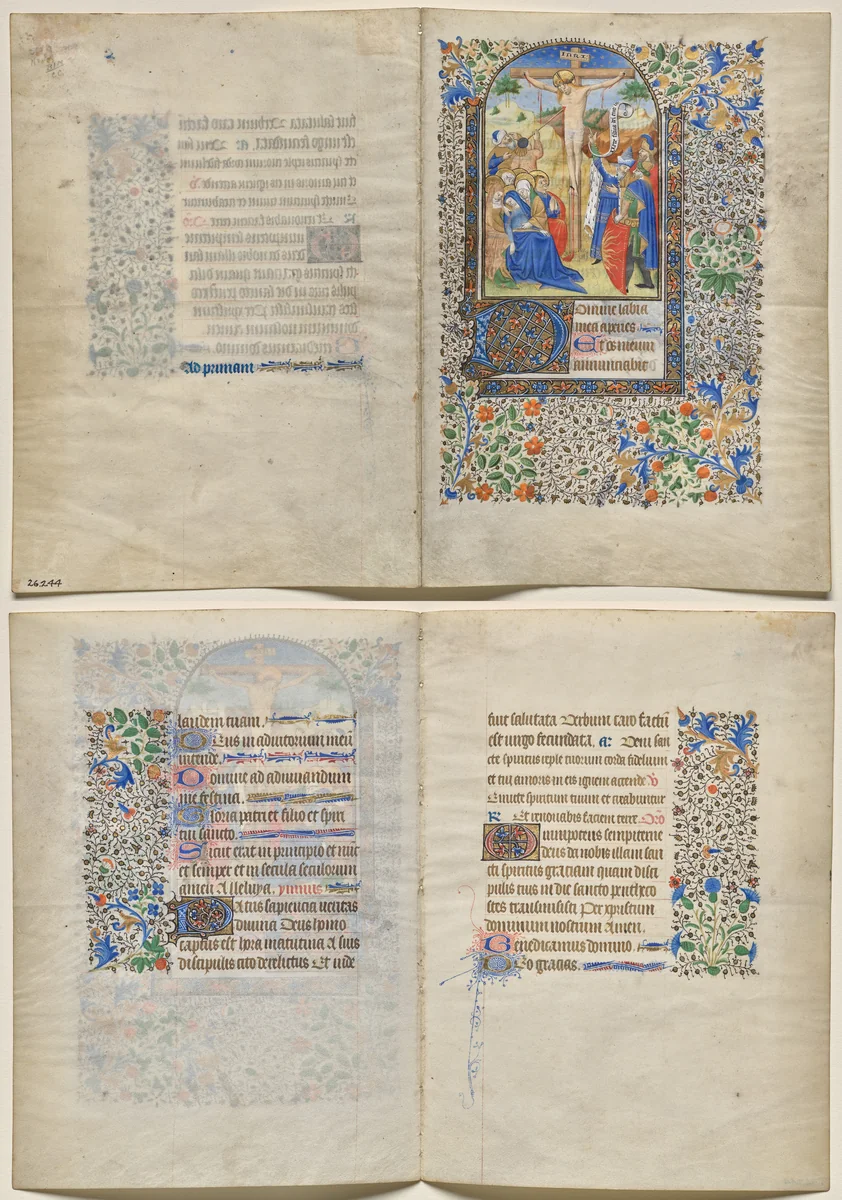 Ad primam
26.244
INRI
Vere filius dei erat
Domine labia
mea aperies
Et os meum
annunciabit
laudem tuam.
Deus in adiutorium meū
intende.
Domine ad adiuvandum
me festina.
Gloria patri et filio et spiri
tui sancto.
Sicut erat in principio et nūc
et semper et in secula seculorum
amen Alleluya. ymnus
Patris sapiencia veritas
divina Deus homo
captus est hora matutina A suis
discipulis cito derelictus Et inde
fuit salutata Verbum caro factū
est virgo fecundata. a: Veni san
cte spiritus reple tuorum corda fidelium
et tui amoris in eis ignem accende v
Emicte spiritum tuum et creabuntur
R Et renovabis faciem terre. Orō
Omnipotens sempiterne
deus da nobis illam san
cti spiritus graciam quam disci
pulis tuis in die sancto pentheco
stes transmisisti Per xpristum
dominum nostrum Amen.
Benedicamus domino.
Deo gracias.